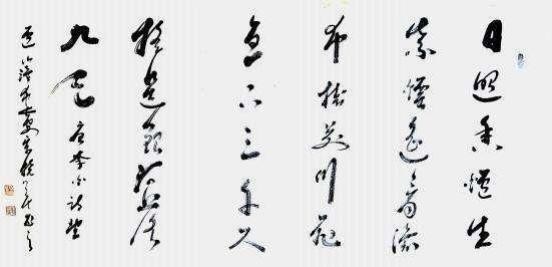 日照香爐生
紫煙遙看瀑
布掛前川飛
直下三千尺
疑是銀河落
九天 唐李白詩望
廬山瀑布